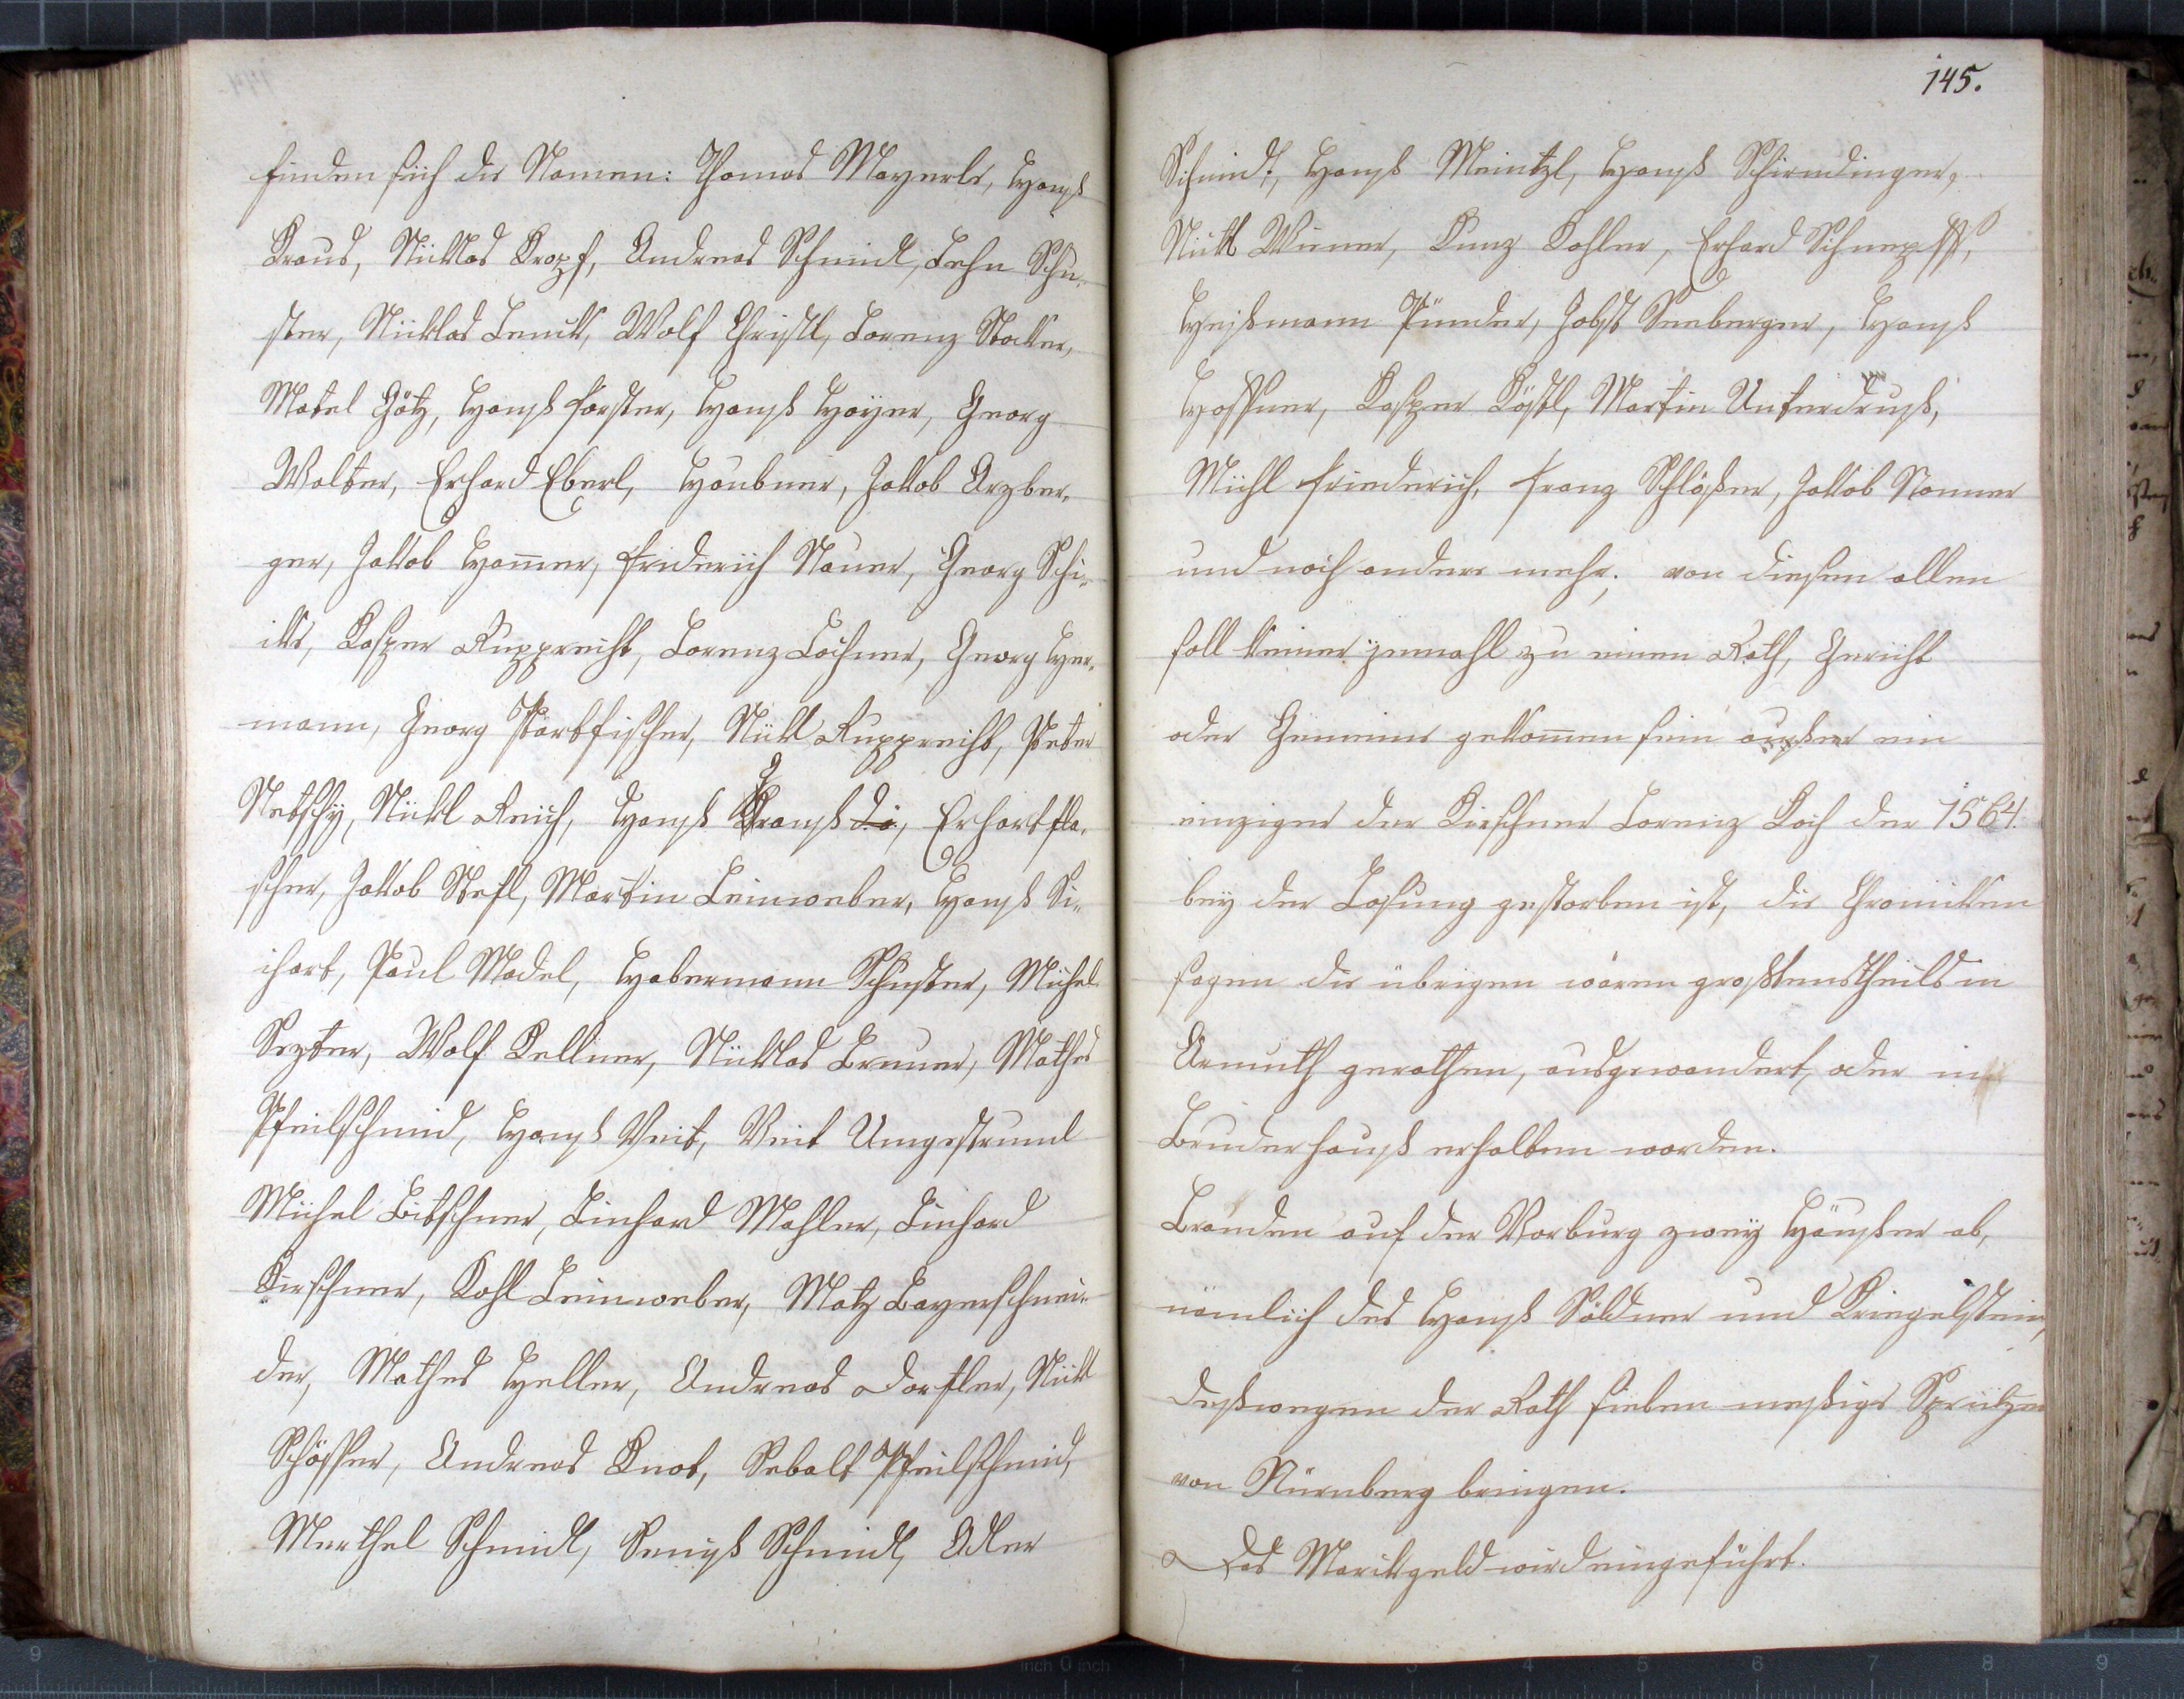 finden sich die Namen: Thomas Mayerle, Hanß
Kraus, Nicklas Kropf, Andreas Schmidt, Lehn Schu-
ster, Nicklas Lenck, Wolf Christl, Lorenz Stocker,
Matel Götz, Hanß Forster, Hanß Hoÿer, Georg
Walter, Erhard Eberl, Haubner, Jakob Arzber-
ger, Jakob Ham̄er, Friderich Naner, Georg Schi-
cke, Kasper Rupprecht, Lorenz Lochner, Georg Her-
mann, Georg Partfischer, Nickl Rupprecht, Peter
Netschÿ, Nickl Reich, Hanß Kranß di, Erhart Fla-
scher, Jakob Stefl, Martin Leinweber, Hanß Si-
chart, Paul Madel, Habermann Schuster, Michel
Sezter, Wolf Kellner, Nicklas Brunner, Mathes
Pfeilschmid, Hanß Veit, Veit Ungestrumd
Michel Bitschner, Linhard Mahler, Linhard
Kirschner, Kohl Leinweber, Matz Bayerschnei-
der, Mathes Heller, Andreas Dorfler, Nickl
Schösser, Andreas Knot, Sebalt Pfeilschmid,
Merthel Schmidt, Schmidt, Adler
145.
Schmidt, Hanß Meintzl, Hanß Schirndinger,
Nickl Wiener, Kunz Kohler, Erhard Schnepff,
Heißmann Pünder, Jobst Seeberger, Hanß
Hoffner, Kasper Köstl, Martin Unterdruß,
Michl Friederich, Franz Schlosser, Jakob Nonner
und noch andere mehr; von diesen allen
soll keiner jemahl zu einen Rath, Gericht
oder Gemeine gekom̄en sein außer ein
einziger der Kirschner Lorenz Koch der 1564.
beÿ der Losung gestorben ist, die Chronicken
sagen die übrigen wären großtenstheils in
Armuth gerathen, ausgewandert, oder in
Bruderhauß erhalten worden.
Branden auf der Vorburg zweÿ Häußer ab,
nämlich des Hanß Söldner und Kriegelstein,
deßwegen der Rath sieben meßige Spritzen
von Nürnberg bringen.
Das Marcktgeld wird eingeführt.